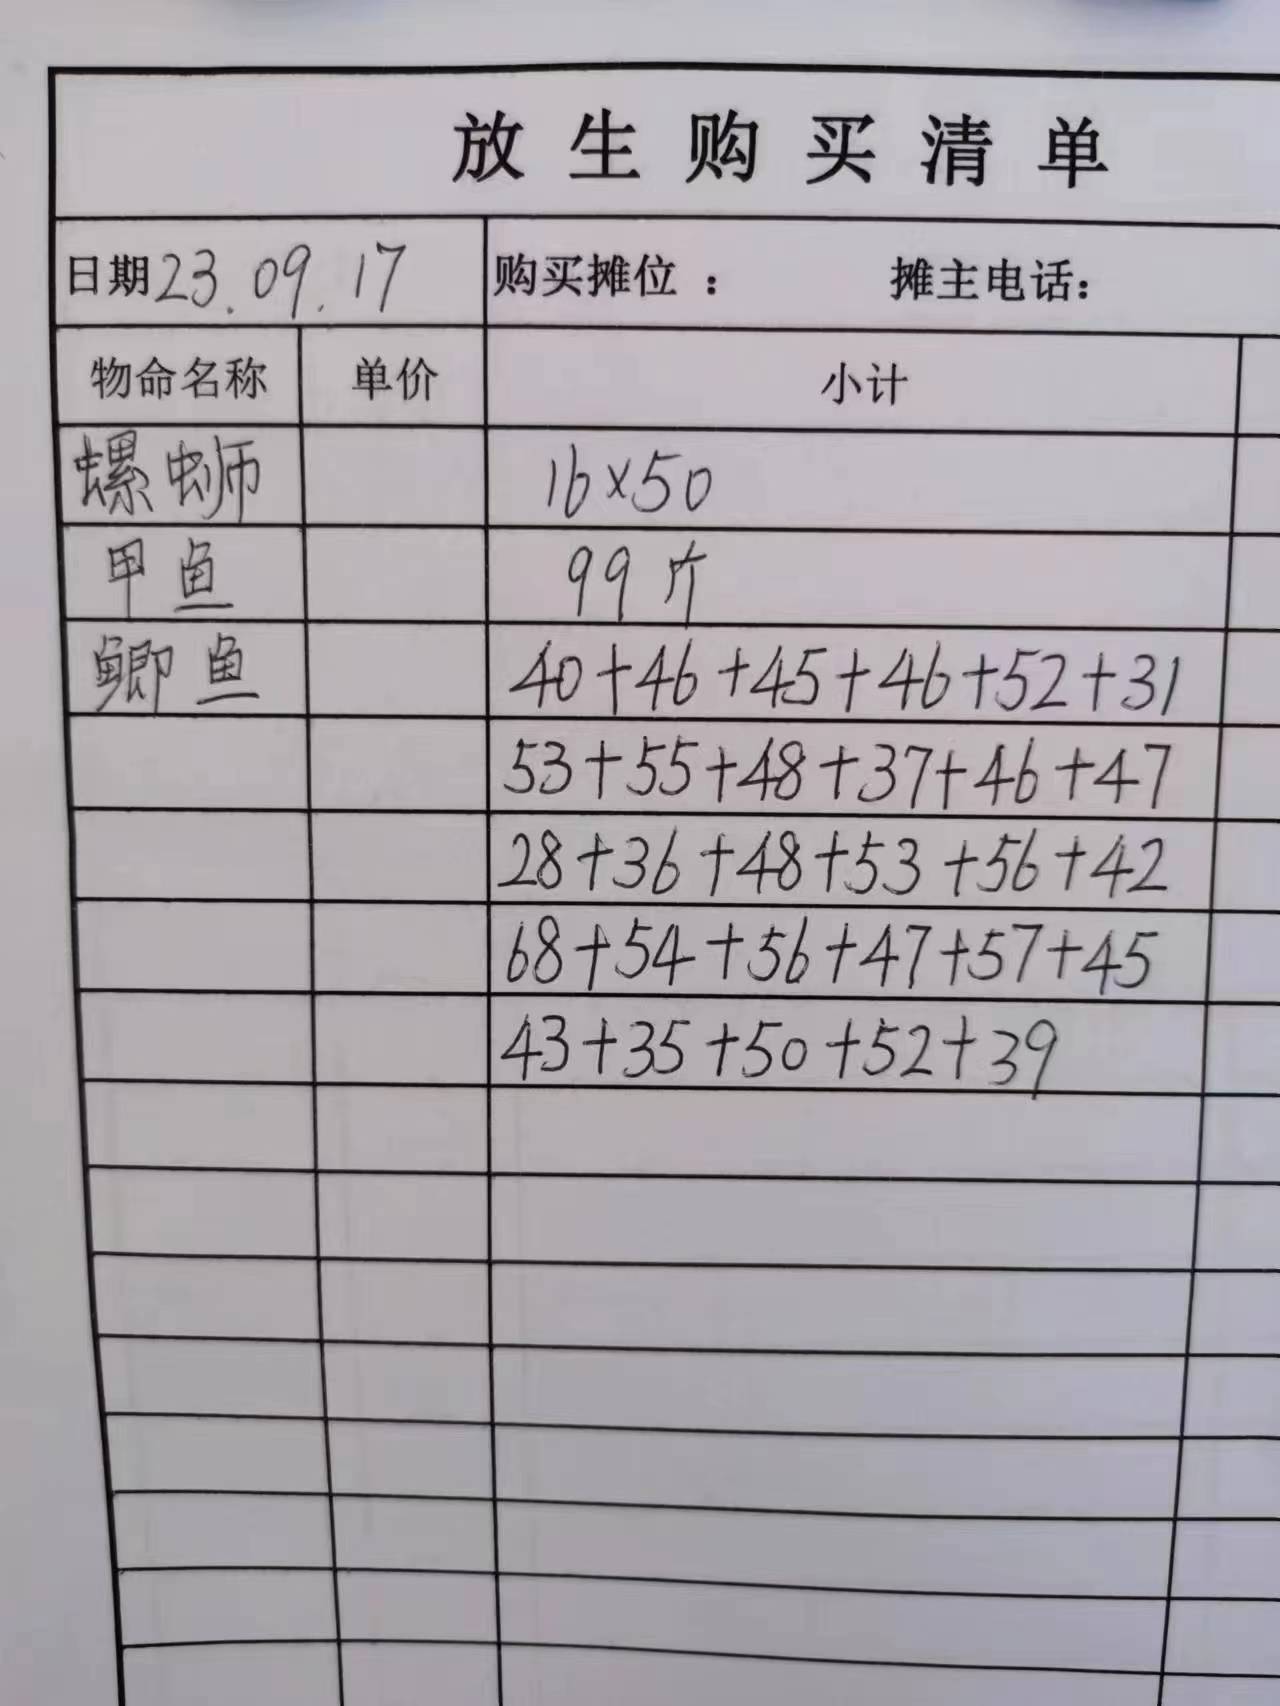 放生购买清单
日期23.09.17 购买摊位： 摊主电话：
物命名称 单价 小计
螺蛳 16×50
甲鱼 99斤
鲫鱼 40+46+45+46+52+31
53+55+48+37+46+47
28+36+48+53+56+42
68+54+56+47+57+45
43+35+50+52+39